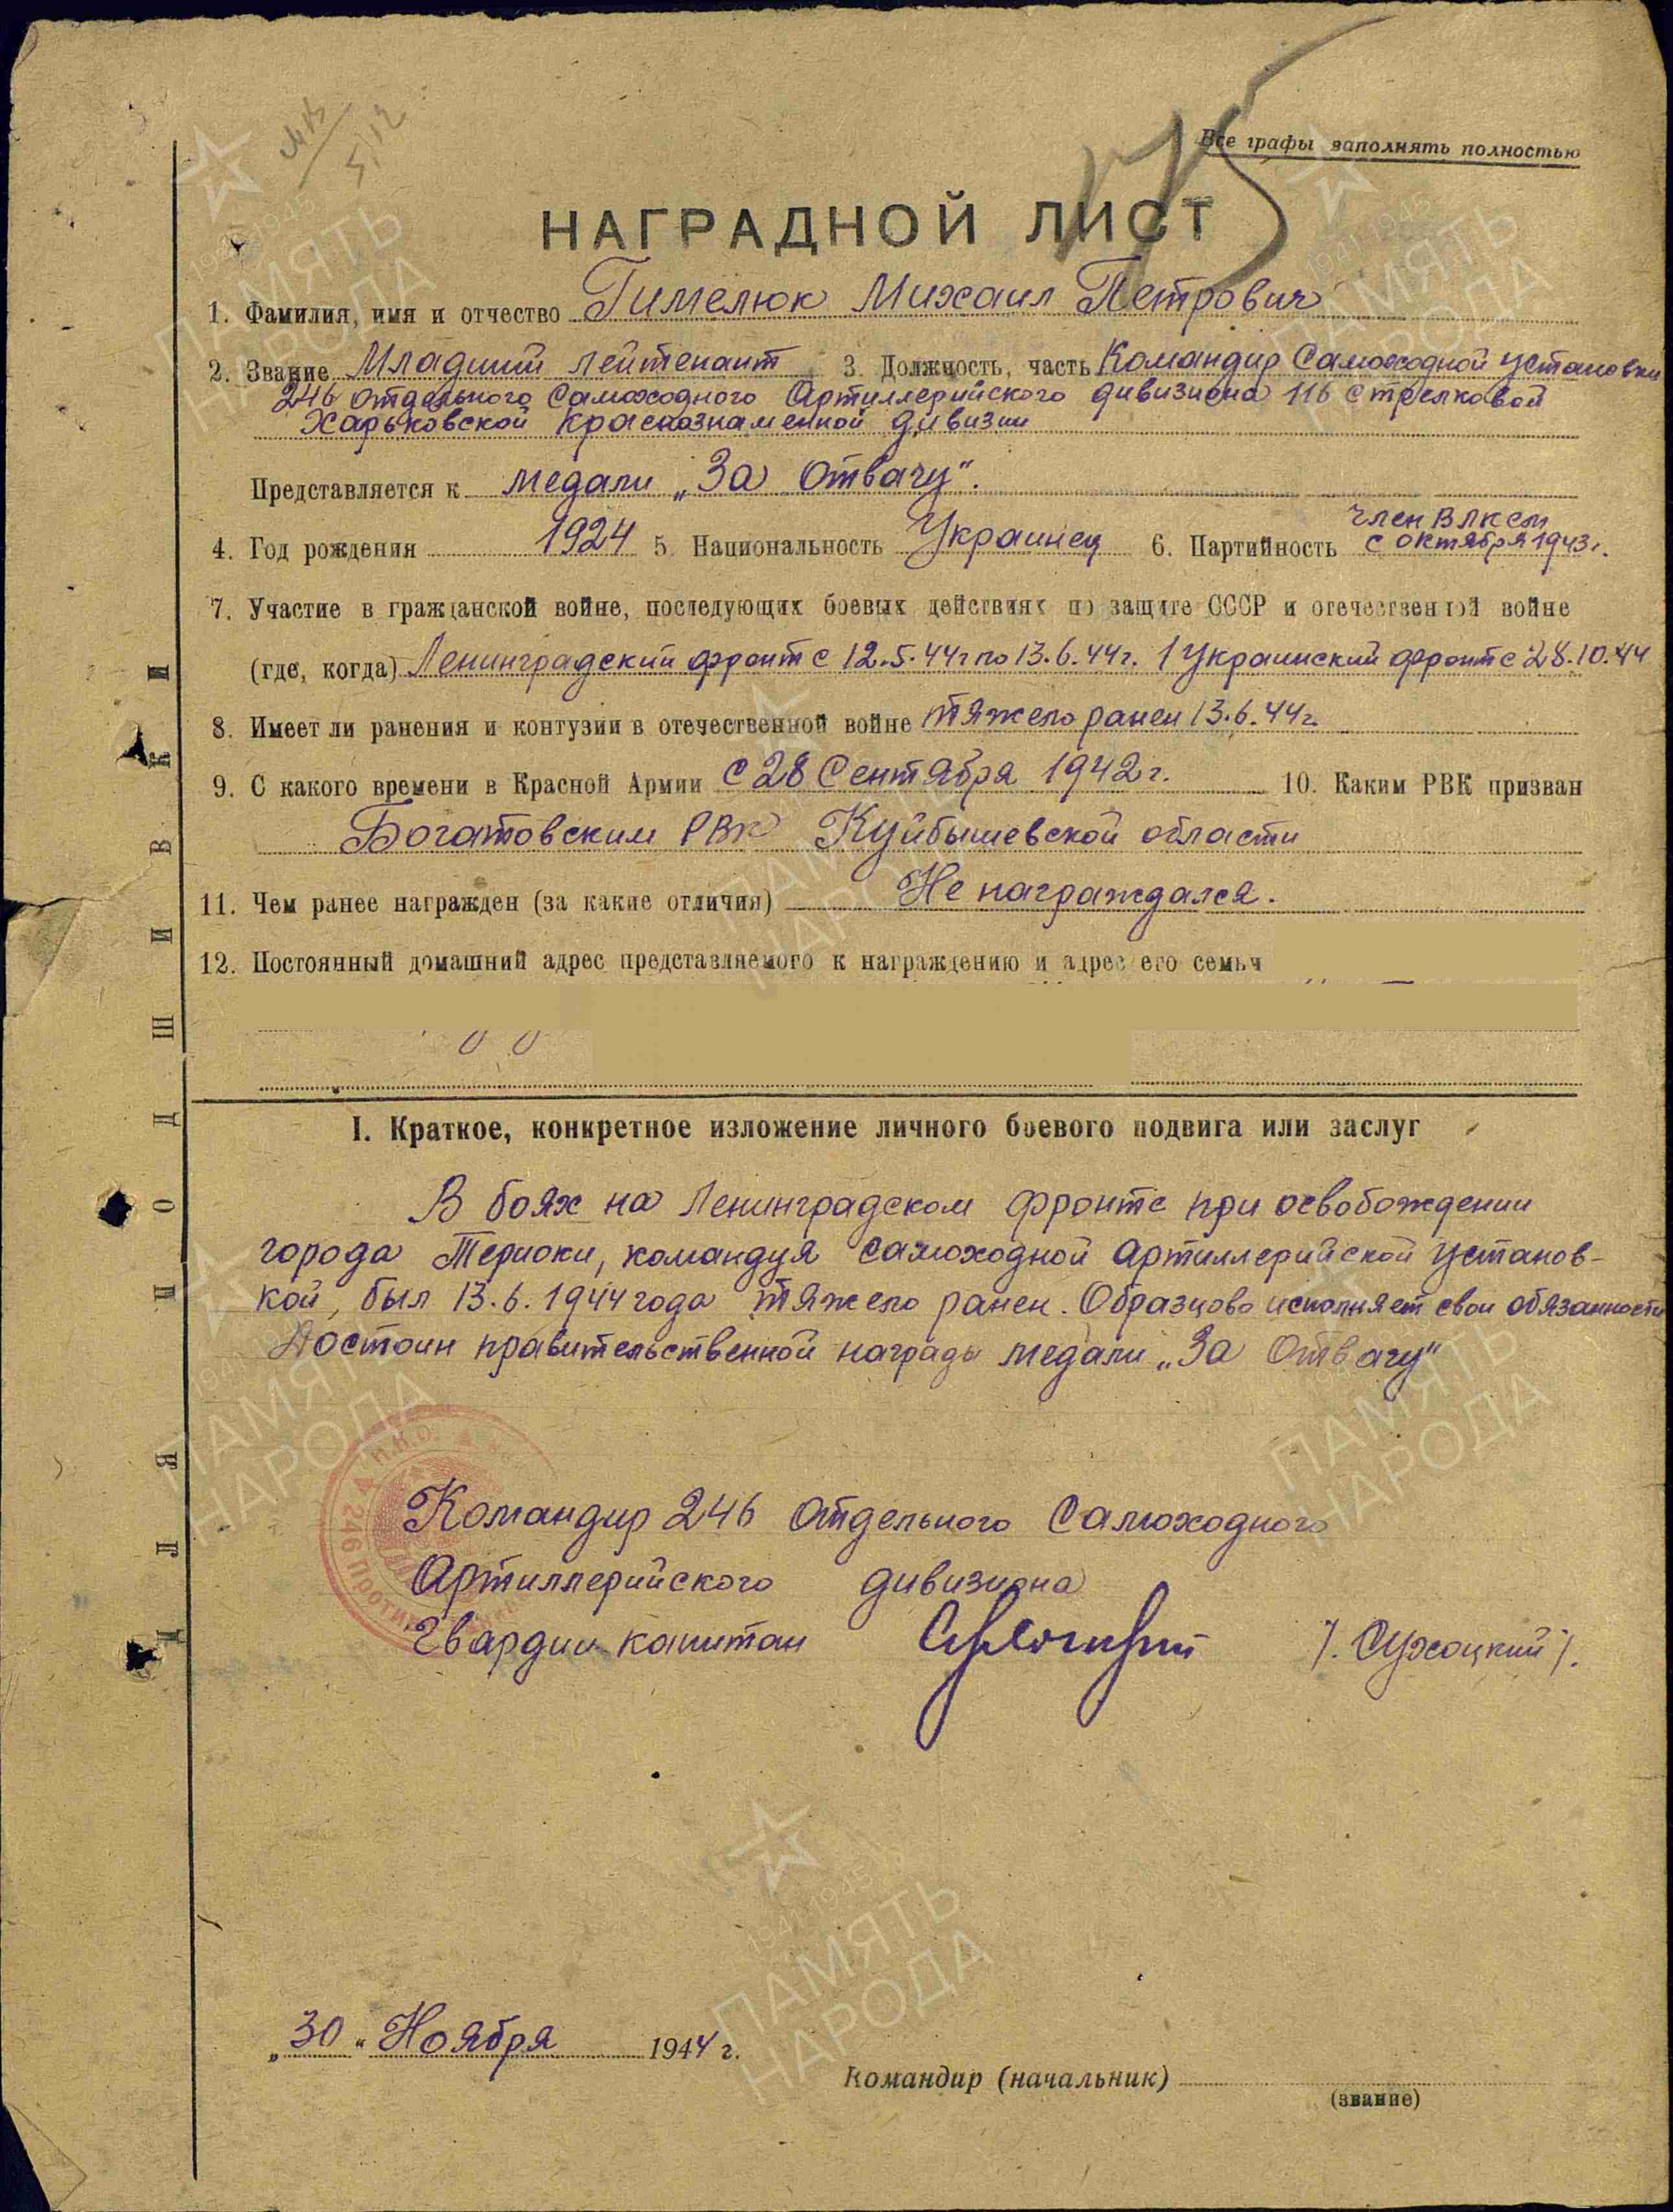 Все графы заполнять полностью
НАГРАДНОЙ ЛИСТ
1. Фамилия, имя и отчество Гимелюк Михаил Петрович
2. Звание Младший лейтенант 3. Должность, часть Командир Самоходной установки
246 отдельного Самоходного Артиллерийского дивизиона 116 стрелковой
Харьковской Краснознаменной дивизии
Представляется к медали „За Отвагу“.
член ВЛКСМ
4. Год рождения 1924 5. Национальность Украинец 6. Партийность с октября 1943г.
7. Участие в гражданской войне, последующих боевых действиях по защите СССР и отечественной войне
(где, когда) Ленинградский фронт с 12.5.44г по 13.6.44г. 1 Украинский фронт с 28.10.44
8. Имеет ли ранения и контузии в отечественной войне тяжело ранен 13.6.44г.
9. С какого времени в Красной Армии с 28 Сентября 1942г. 10. Каким РВК призван
Богатовским РВК Куйбышевской области
11. Чем ранее награжден (за какие отличия) Не награждался.
12. Постоянный домашний адрес представляемого к награждению и адрес его семьи
I. Краткое, конкретное изложение личного боевого подвига или заслуг
В боях на Ленинградском фронте при освобождении
города Териоки, командуя самоходной артиллерийской установ-
кой, был 13.6.1944 года тяжело ранен. Образцово исполняет свои обязанности
Достоин правительственной награды медали „За Отвагу“
Командир 246 отдельного Самоходного
Артиллерийского дивизиона
Гвардии капитан /. Сухоцкий /.
„30“ Ноября 1944 г.
Командир (начальник)
(звание)
ДЛЯ ПОДШИВКИ
ПАМЯТЬ
НАРОДА
1941-1945